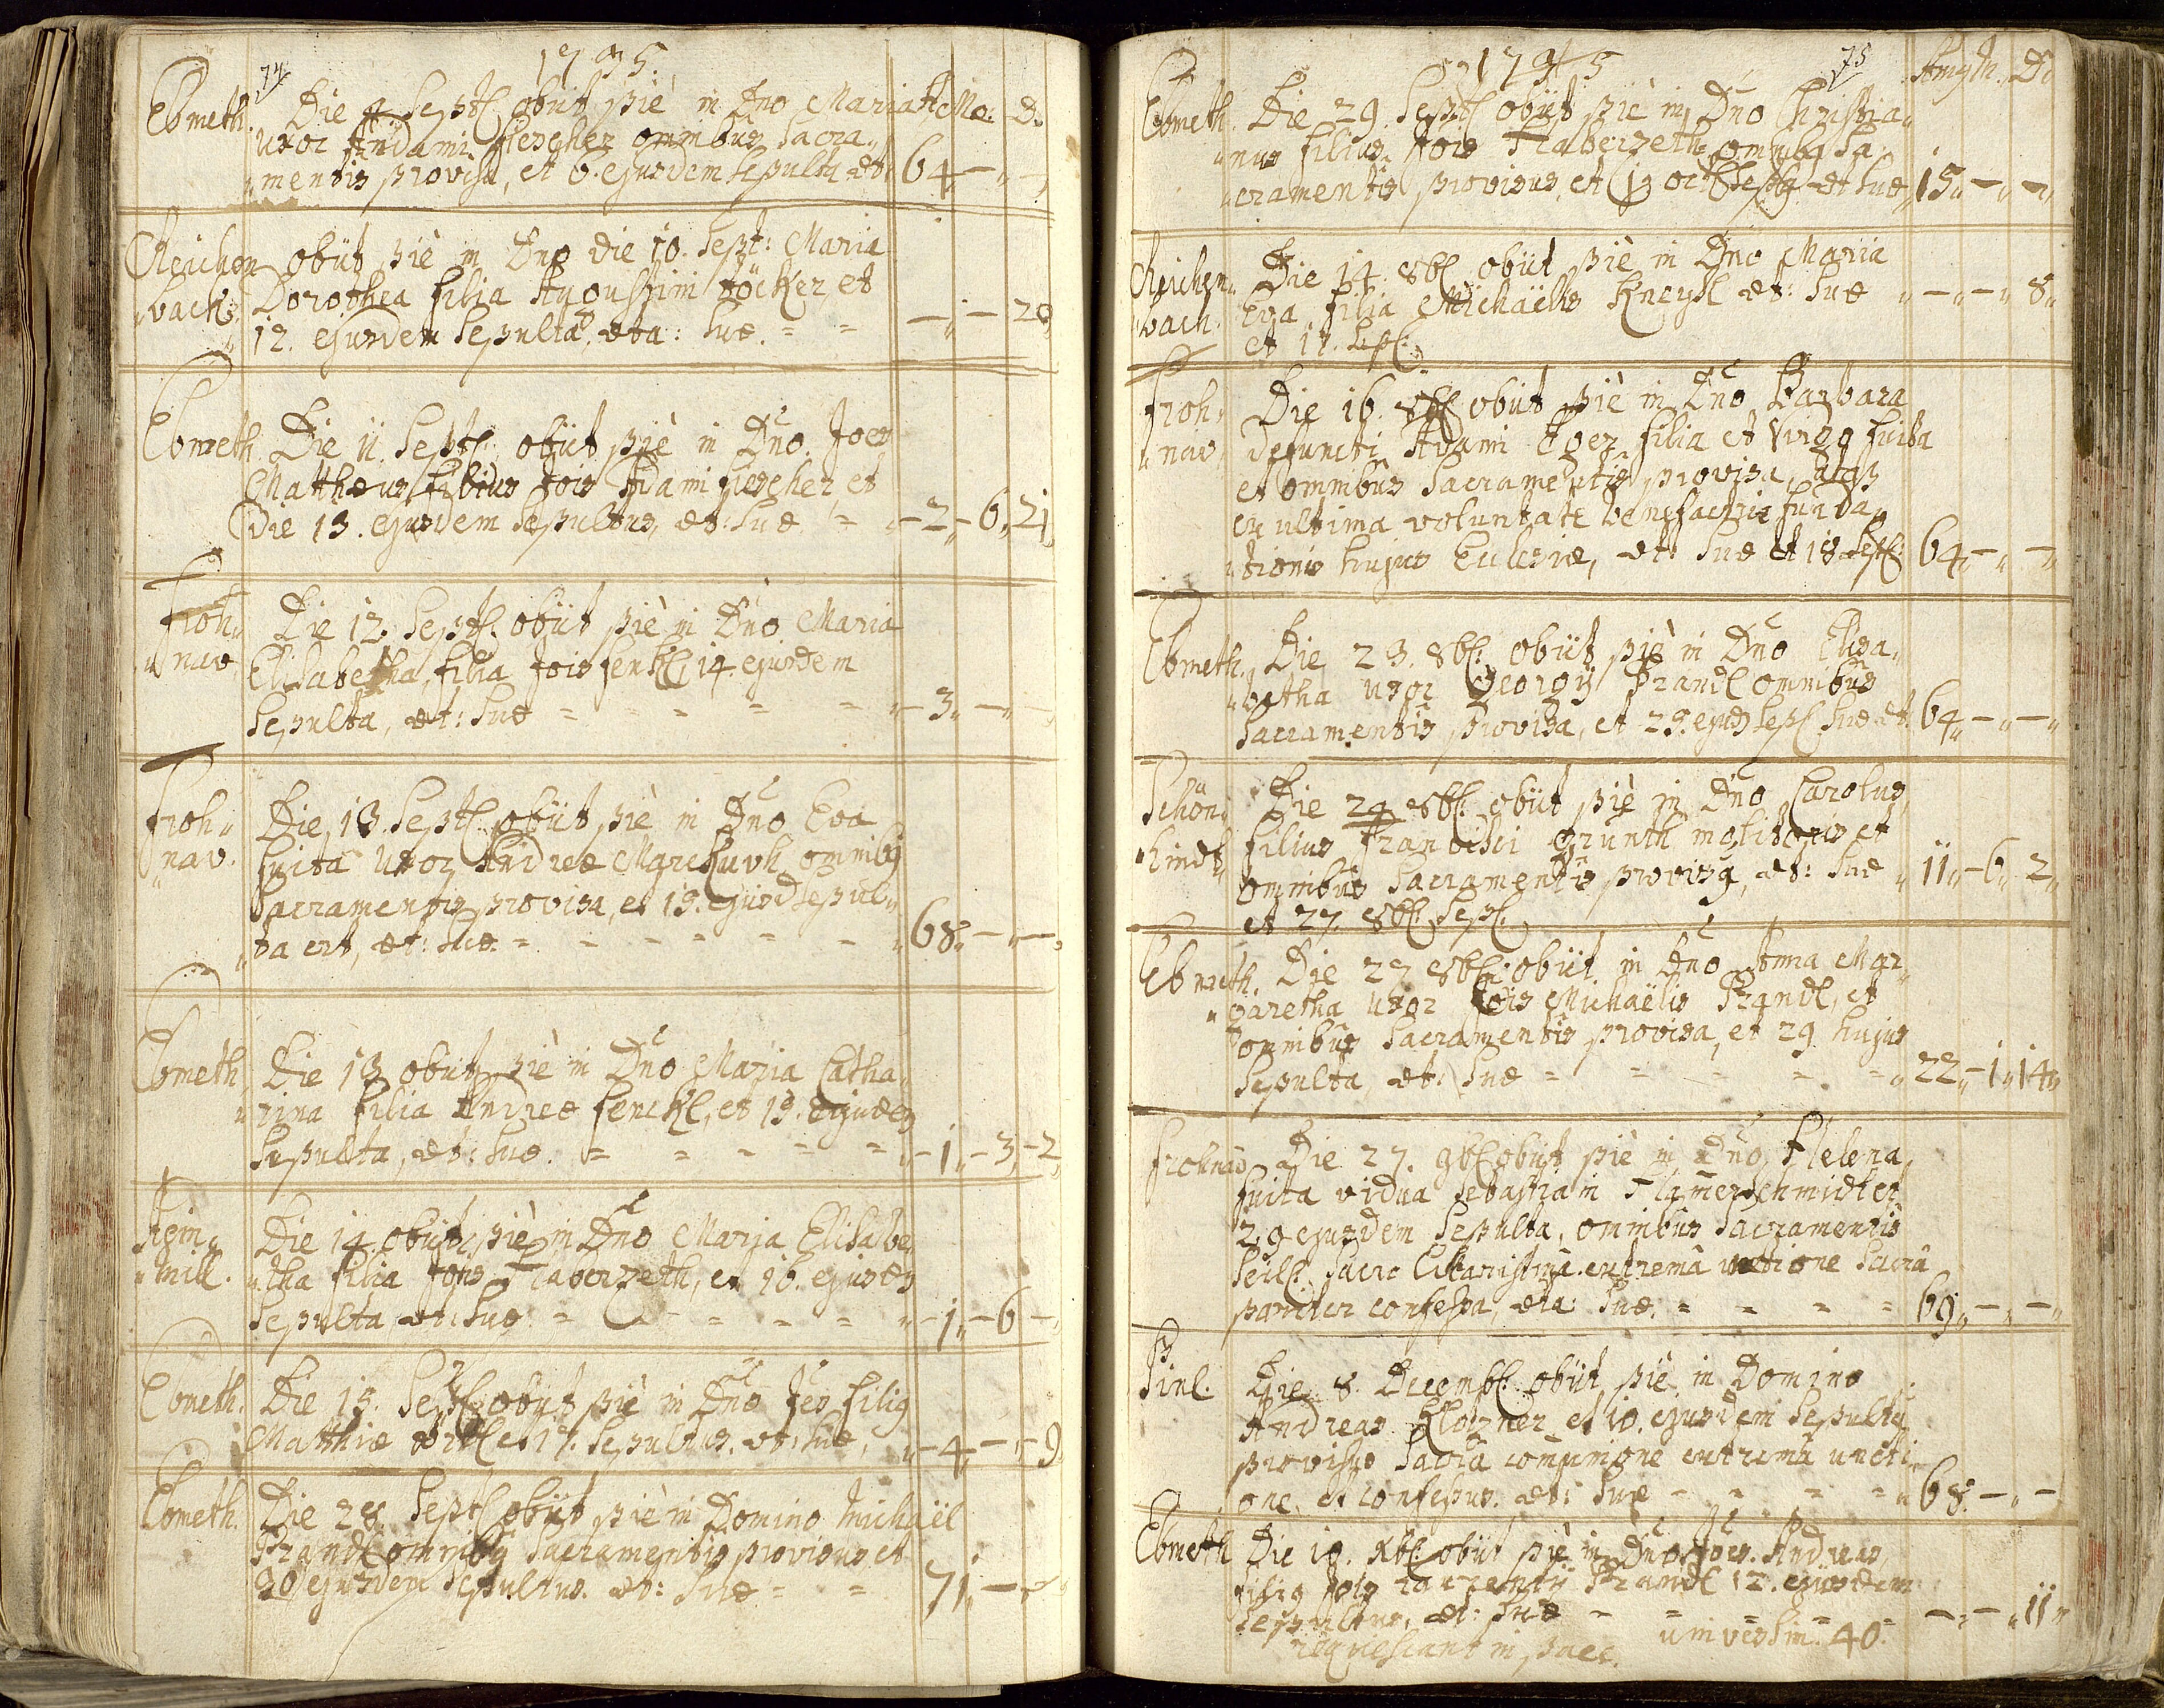 74
1795.
A: Mo: D.
Ebmeth. Die 4 Septl obiit piè in Dno Maria
uxor Adami Fiescher omnibus Sacra„
„mentis provisa, et 6. ejusdem Sepulta æt. 64„ – „ –
Reichen obiit piè in Dno die 10. Sept: Maria
„bach. Dorothea filia Agoustini Föcker et
12. ejusdem Sepulta, æta: suæ. = = – „ – 20
Ebmeth Die 11. Septl. obiit piè in Dno. Joes
Matthæus filius Jois Adami Fiescher et
die 13. ejusdem Sepultus, æt: suæ = „ – 2 „ – 6, 21
Froh„ Die 12. Septl. obiit piè in Dno Maria
„nav. Elisabetha, filia Jois Fenkl, 14. ejusdem
Sepulta, æt: suæ = = = = = „ – 3 „ – „ –
Froh„ Die 13. Septl. obiit piè in Dno Eva
„nav. Suita Uxor Andreæ omnibg
Sacramentis provisa, et 15. ejusd Sepul„
„ta est, æt: suæ. = – – – – – „ 68 „ – „ –
Ebmeth Die 13 obiit piè in Dno Maria Catha„
„rina filia Andreæ Fenckl, et 15. ejusdem
Sepulta, æt: suæ. = = = = = „ – 1 „ – 3 „ – 2
„mill. Die 14. obiit piè in Dno Maria Elisabe„
„tha filia Jois Haberzeth, et 16. ejusdem
Sepulta æt: suæ = – = – = „ – 1 „ – 6 –
Ebmeth. Die 15. Septl. obiit piè in Dno Jes filig
Matthiæ et 17. Sepultus. æt: suæ, „ – 4 „ – „ – 9
Ebmeth. Die 28 Septl obiit piè in Domino Michaël
Prandl omnibg Sacramentis provisus et
30 ejusdem Sepultus. æt: suæ = = 71 „ – „ –
1795
75
Di
Ebmeth. Die 29. Septl obiit piè in Dno Christia„
„nus filius Jois Haberzeth omnibg Sa„
„cramentis provisus, et 1 octl Sep æt suæ 15 „ – „ –
Reichen„ Die 14. 8bl. obiit piè in Dno Maria
„bach. Eva filia Michaëlis Kneysl æt: suæ „ – „ – „ 8„
et 17. Sepl.
Froh„ Die 16. 8bl obiit piè in Dno Barbara
„nav. defuncti Adami Eger filia et Virgo suita
et omnibus Sacramentis provisa,
ex ultima voluntate benefactrix funda„
„tionis hujus Eclesiæ, æt: suæ et 18 Sepl: 64 „ – „ –
Ebmeth. Die 23. 8bl. obiit piè in Dno Elisa„
„betha uxor Georgij Prandl omnibus
Sacramentis provisa, et 25. ejusd Sepl suæ æt. 64 „ – „ – „
Schön„ Die 24 8bl. obiit piè in Dno Carolus
„hindt filius Francisci Grünth molitoris et
omnibus Sacramentis provisg, æt: suæ „ 11 „ – 6 „ 2„
et 27. 8bl. Sepl.
Ebmeth. Die 27 8bl. obiit in Dno Anna Mar„
„garetha uxor Jois Michaëlis Prandl, et
omnibus Sacramentis provisa, et 29 hujus
Sepulta, æt: suæ = = = = = „ 22 „ – 1 „ 14„
Frohnav Die 27. 9bl obiit piè in Dno Helena
suita vidua Sebastiani Hamerschmidt et
29 ejusdem Sepulta, omnibus Sacramentis
extremâ unctione Sacrâ
pariter confessa, æta: suæ. = = = = 69 „ – „ – „
Pirl. Die 8. Decembl. obiit piè in Domino
Andreas Klozner et 10. ejusdem Sepultg
provisus Sacrâ comunione extremâ uncti„
one, et confessus. æt: suæ – – – = „ 68. – „ –
Ebmeth Die 10. Xbl. obiit piè in Dno Joes. Andreas,
filig Jois Laurentij Prandl 12. ejusdem
Sepultus, æt: suæ – = = = = – „ – „ 11 „
requiescant in pace. universim. 40.